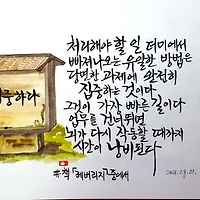 처리해야 할 일 더미에서
빠져나오는 유일한 방법은
당면한 과제에 완전히
집중하는 것이다
그것이 가장 빠른 길이다
업무를 건너뛰면
뇌가 다시 작동할 때까지
시간이 낭비된다
집중하다
#책 「레버리지」중에서